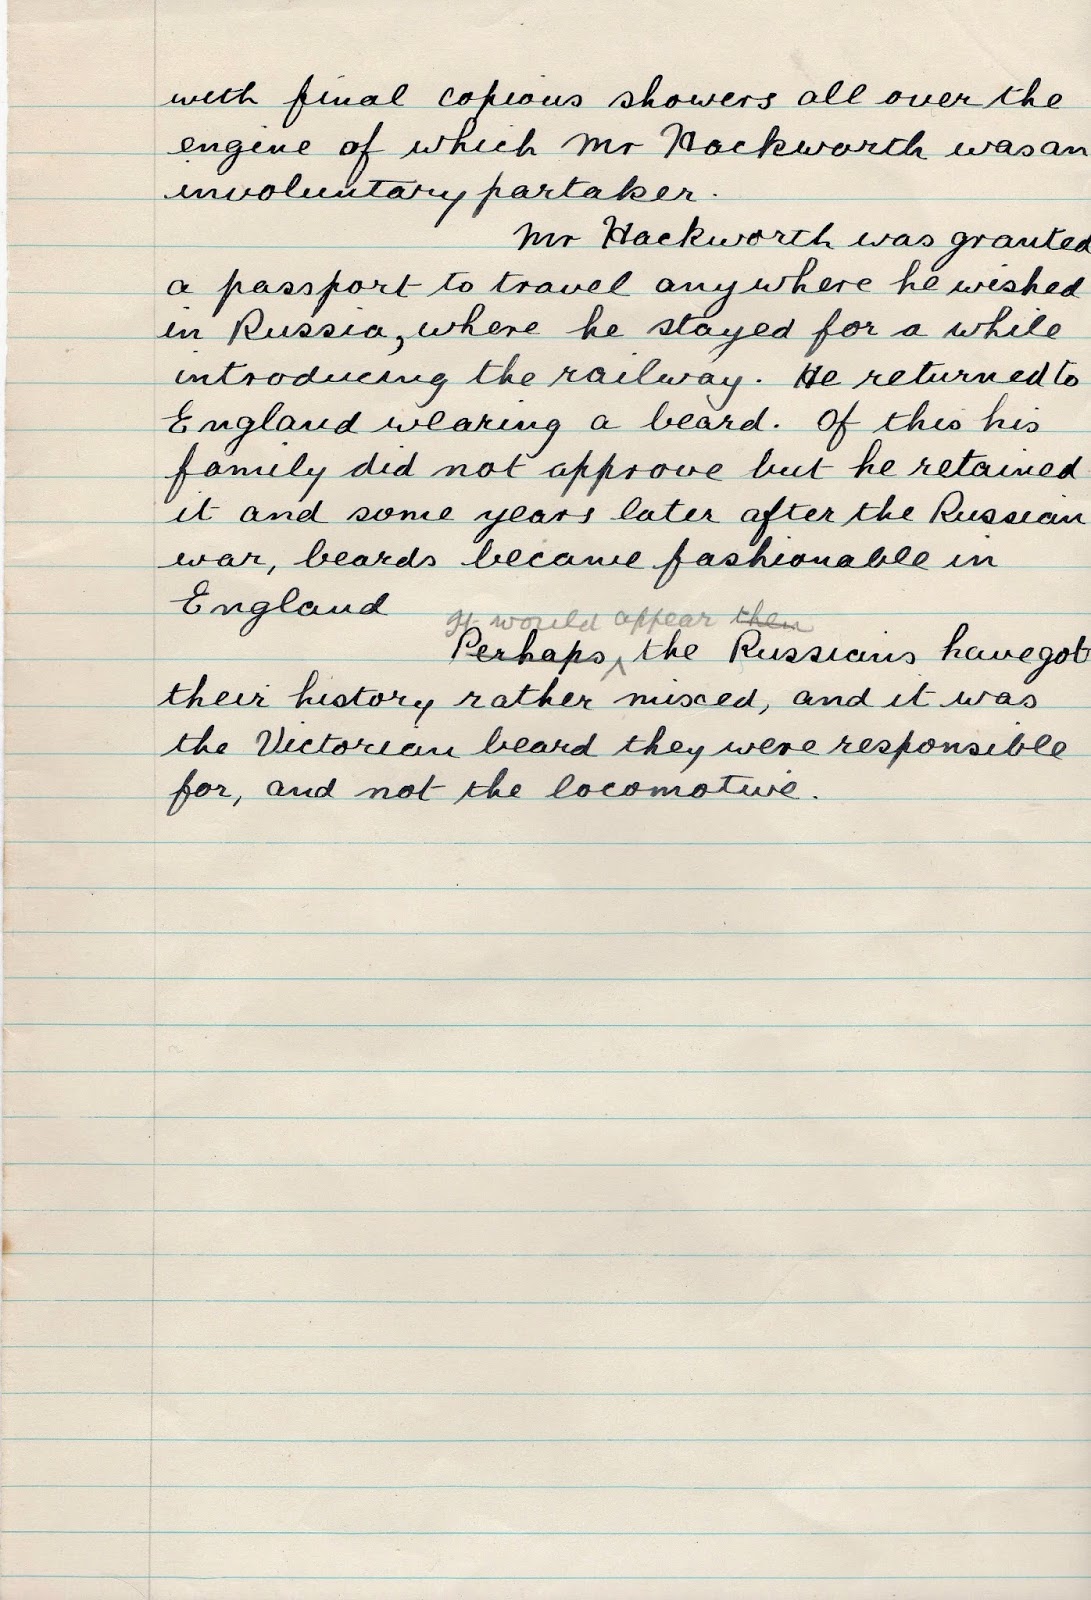 with final copious showers all over the
engine of which Mr Hackworth was an
involuntary partaker.
Mr Hackworth was granted
a passport to travel anywhere he wished
in Russia, where he stayed for a while
introducing the railway. He returned to
England wearing a beard. Of this his
family did not approve but he retained
it and some years later after the Russian
war, beards became fashionable in
England
It would appear then
Perhaps, the Russians have got
their history rather mixed, and it was
the Victorian beard they were responsible
for, and not the locomotive.